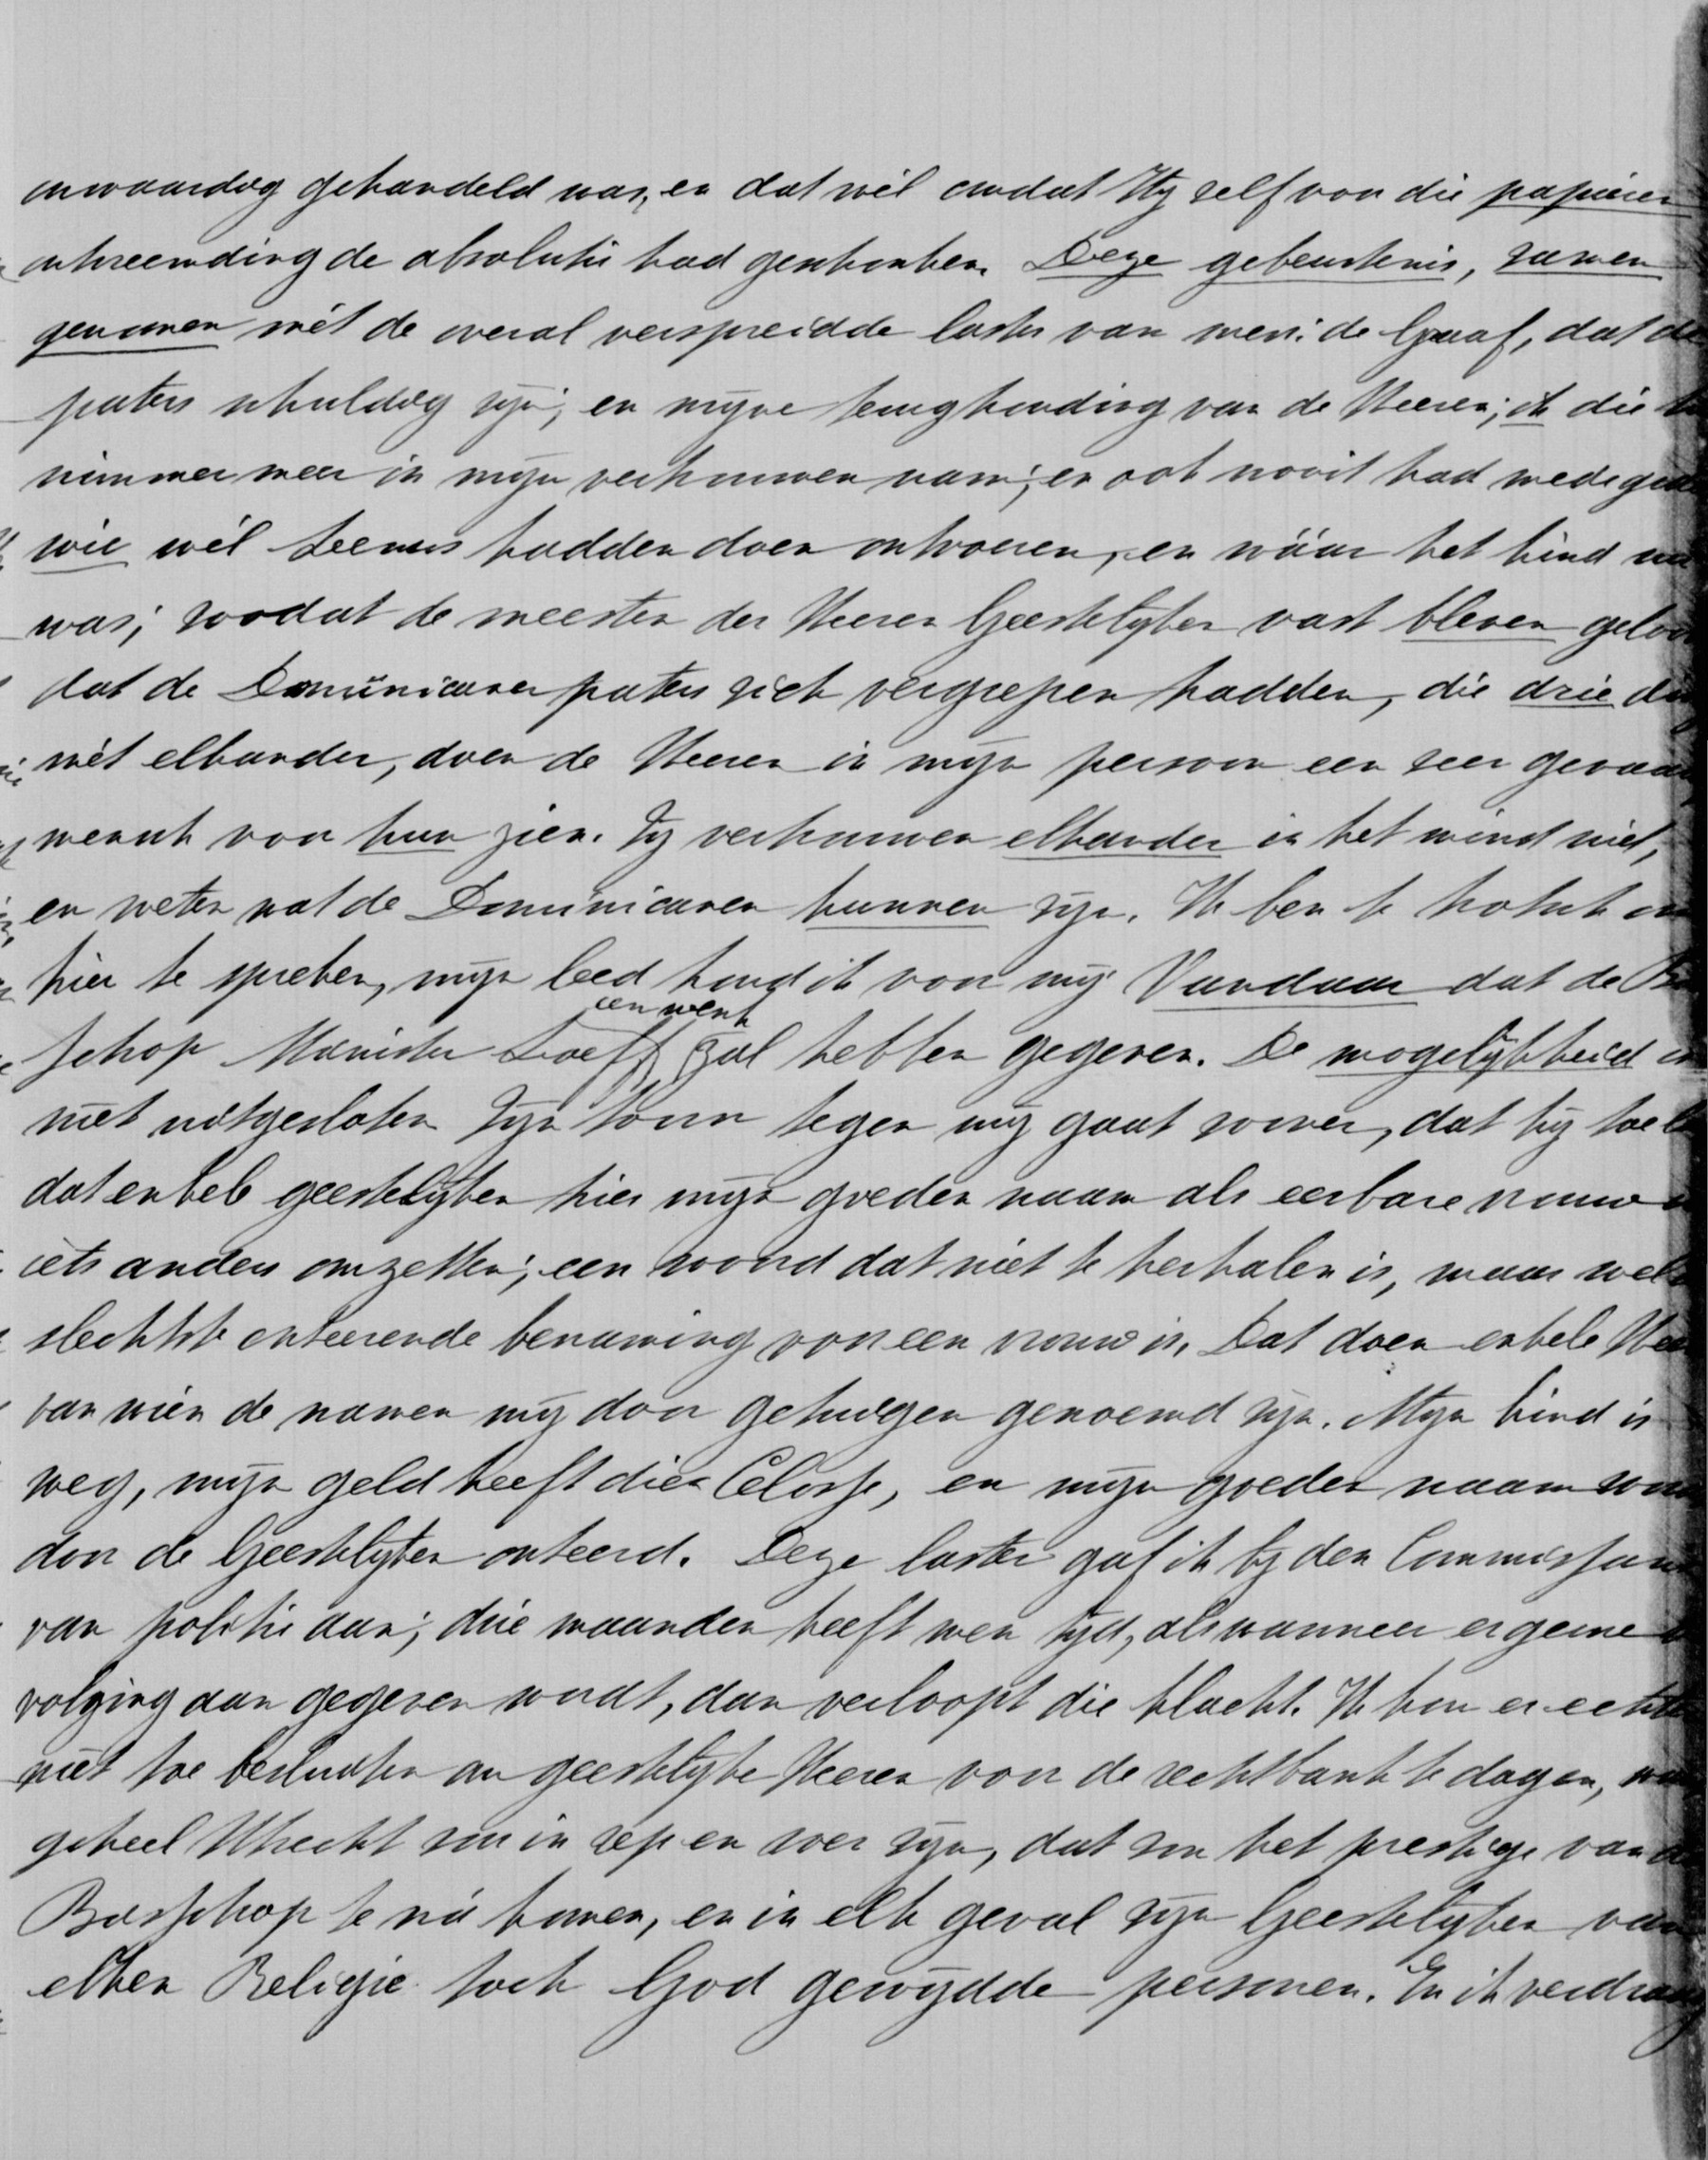 onwaardig gehandeld was, en dat wél omdat Hij zelf voor die papieren
ontvreemding de absolutie had geschonken. Deze gebeurtenis, samen
genomen mét de overal verspreidde laster van mevr. de Graaf, dat de
paters schuldig zijn; en mijne terughouding van de Heeren; ik die
nimmer meer in mijn vertrouwen nam; en ook nooit had medeged
wie wél Leenus hadden doen ontvoeren, en wáár het kind nu
was; zoodat de meesten der Heeren Geestelijken vast bleven geloo
dat de Dominicaner paters zich vergrepen hadden, die drie d
mét elkander, doen de Heeren in mijn persoon een zeer gevaar
mensch voor hun zien. Zij vertrouwen elkander in het minst niet,
en weten wat de Dominicanen kunnen zijn. Ik ben te trotsch om
hier te spreken, mijn leed houd ik voor mij. Vandaar dat de Bis
schop Minister Loeff een wenk zal hebben gegeven. De mogelijkheid is
niet uitgesloten. Zijn toorn tegen mij gaat zoover, dat hij toe
dat enkele geestelijken hier mijn goeden naam als eerbare vrouw
iets anders omzetten; een woord dat niet te herhalen is, maar wel
slechtste onteerende benaming voor een vrouw is. Dat doen enkele Hee
van wien de namen mij door getuigen genoemd zijn. Mijn kind is
weg, mijn geld heeft dien Celosse, en mijn goeden naam
door de Geestelijken onteerd. Deze laster gaf ik bij den Commissaris
van politie aan; drie maanden heeft men tijd, als wanneer er geene
volging aan gegeven wordt, dan verloopt die klacht. Ik kon er echter
niet toe besluiten om geestelijke Heeren voor de rechtbank te dagen,
geheel Utrecht zou in rep en roer zijn, dat zou het prestige van
Bisschop te ná komen, en in elk geval zijn Geestelijken van
elken Religie toch God gewijdde personen. En ik verdraag